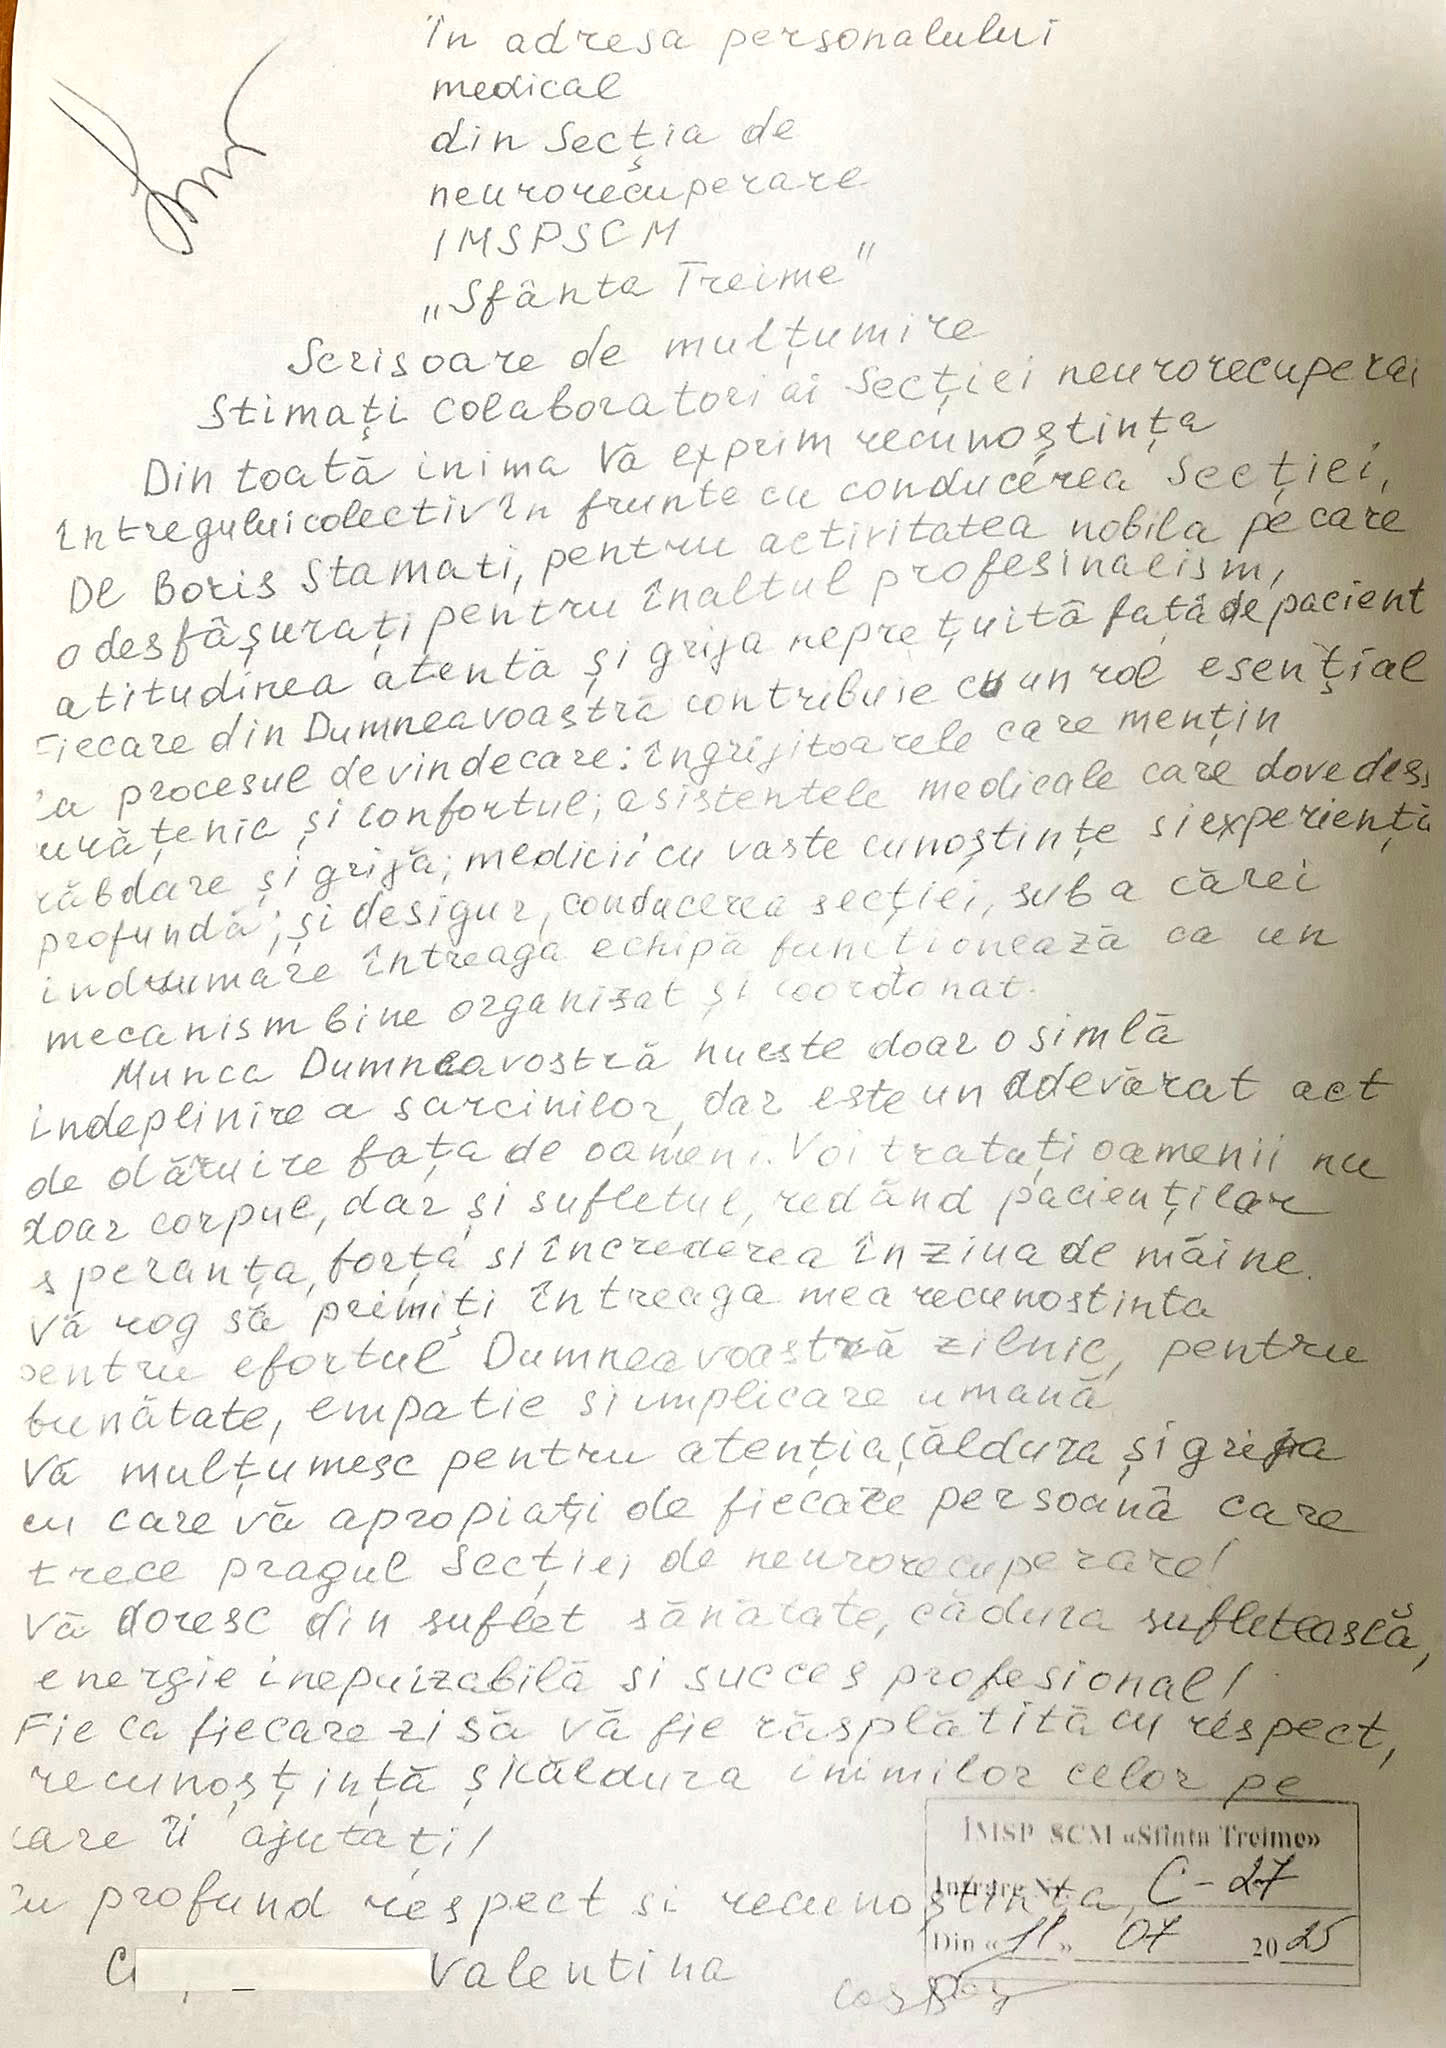 În adresa personalului
medical
din Secția de
neurorecuperare
IMSPSCM
„Sfânta Treime"
Scrisoare de mulțumire
Stimați colaboratori ai Secției neurorecuperări
Din toată inima Vă exprim recunoștința
întregului colectiv în frunte cu conducerea Secției,
Dl Boris Stamati, pentru activitatea nobila pe care
o desfășurați, pentru înaltul profesinalism,
atitudinea atentă și grija neprețuită față de pacient
Fiecare din Dumneavoastră contribuie cu un rol esențial
la procesul de vindecare: îngrijitoarele care mențin
urățenic și confortul; asistentele medicale care dovedesc
răbdare și grijă; medicii cu vaste cunoștințe si experiență
profundă; și desigur, conducerea secției, sub a cărei
indrumare întreaga echipă funcționează ca un
mecanism bine organisat și coordonat.
Munca Dumneavostră nu este doar o simlă
indeplinire a sarcinilor, dar este un adevărat act
de dăruire fața de oameni. Voi tratați oamenii nu
doar corpul, dar și sufletul, redănd pacienților
speranța, forța si încrederea în ziua de măine.
Vă rog să primiți întreaga mea recunostinta
pentru efortul Dumneavoastră zilnic, pentru
bunătate, empatie si implicare umană
Vă mulțumesc pentru atenția, căldura și grija
cu care vă apropiați de fiecare persoană care
trece pragul Secției de neurorecuperare!
Vă doresc din suflet sănătate, cădura sufletească,
energie inepuizabilă si succes profesional!
Fie ca fiecare zi să vă fie răsplătită cu respect,
recunoștință și căldura inimilor celor pe
care îi ajutați!
Cu profund respect si recunoștința,
C Valentina
IMSP SCM «Sfînta Treime»
Intrare Nr. C-27
Din «11» 07 2025